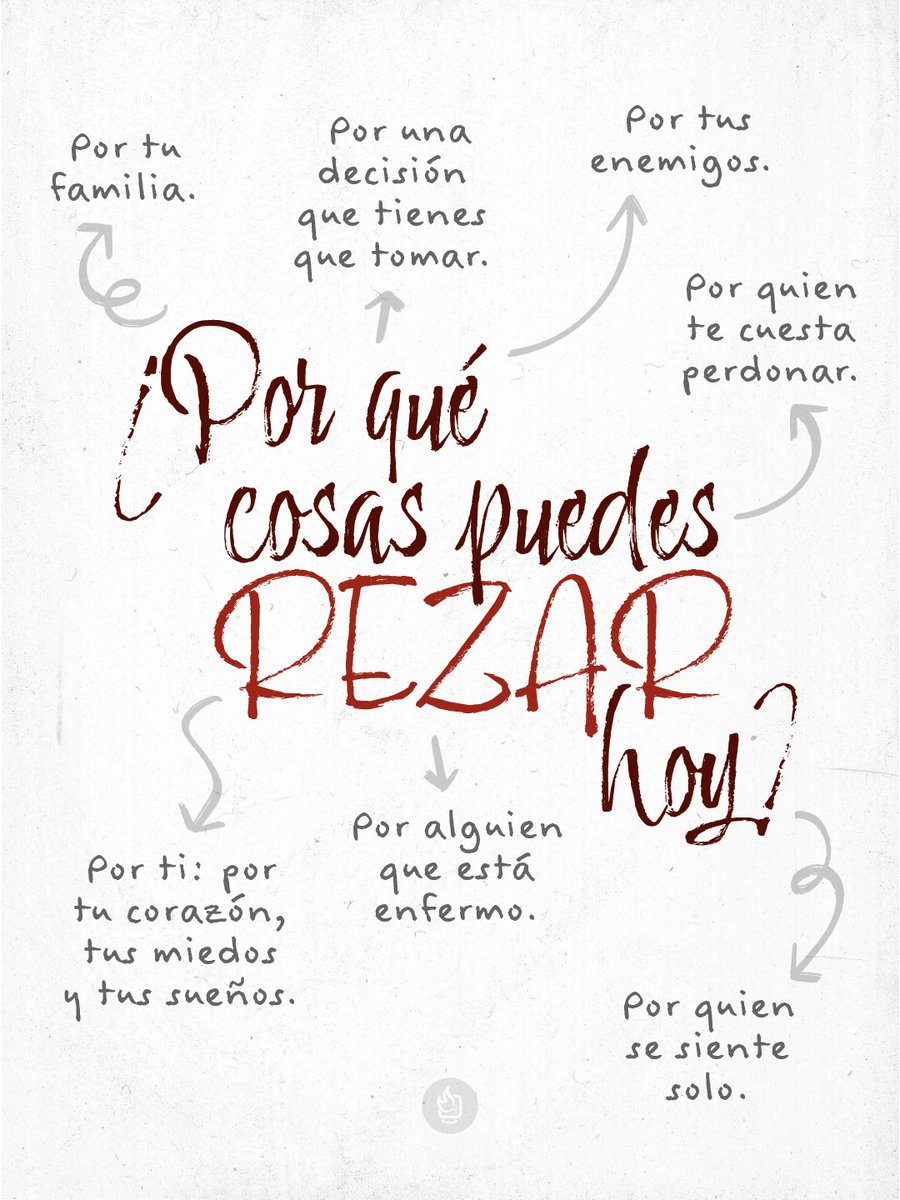 Por tu
familia.
Por una
decisión
que tienes
que tomar.
Por tus
enemigos.
Por quien
te cuesta
perdonar.
¿Por qué
cosas puedes
REZAR
hoy?
Por ti: por
tu corazón,
tus miedos
y tus sueños.
Por alguien
que está
enfermo.
Por quien
se siente
solo.